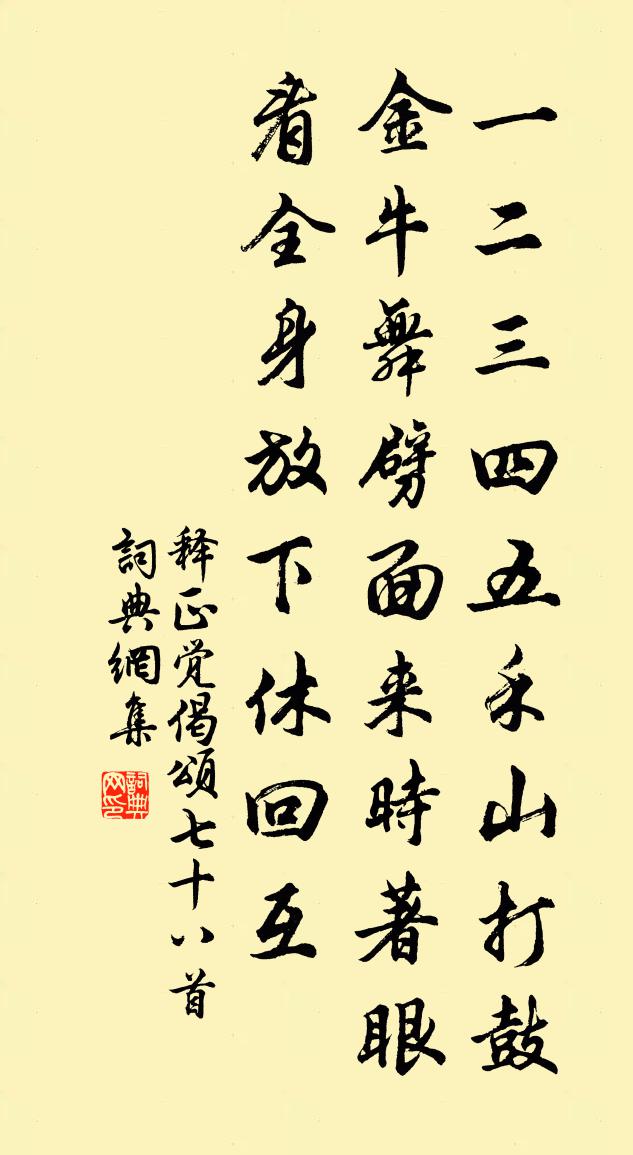 一二三四五禾山打鼓
金牛舞劈面来時著眼
看全身放下休回互
释正觉偈頌七十八首
詞典網集
詞典网印